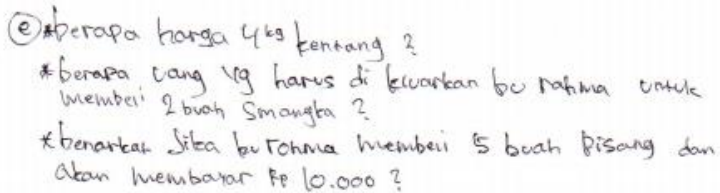 ⓔ *berapa harga 4 kg kentang ?
* berapa uang yg harus di kluarkan bu rahma untuk
membeli 2 buah Smangka ?
* benarkah Jika bu rohma membeli 5 buah Pisang dan
akan membayar Rp 10.000 ?